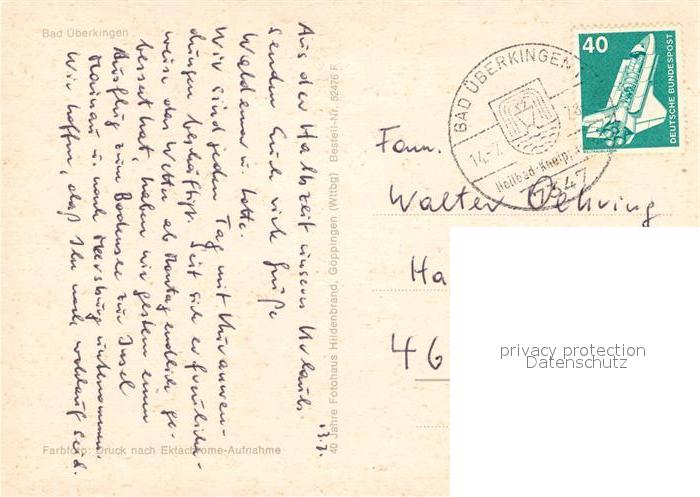 Bad Überkingen
13.7.
Aus der Halbzeit unseres Urlaubs
senden Euch viele Grüße
Waldemar u. Lotte.
Wir sind jeden Tag mit Kuranwen-
dungen beschäftigt. Seit sich erfreulicher-
weise das Wetter ab Montag endlich ge-
bessert hat, haben wir gestern einen
Ausflug zum Bodensee zur Insel
Mainau u. nach Meersburg unternommen.
Wir hoffen, daß Ihr noch wohlauf seid.
Farbfoto: Druck nach Ektachrome-Aufnahme
40 Jahre Fotohaus Hildenbrand, Göppingen (Wttbg) Bestell-Nr. 52476 F
40
DEUTSCHE BUNDESPOST
BAD ÜBERKINGEN
14.-7.
Heilbad-Kneip
7347
Fam.
Walter Oehring
Ha
46
privacy protection
Datenschutz